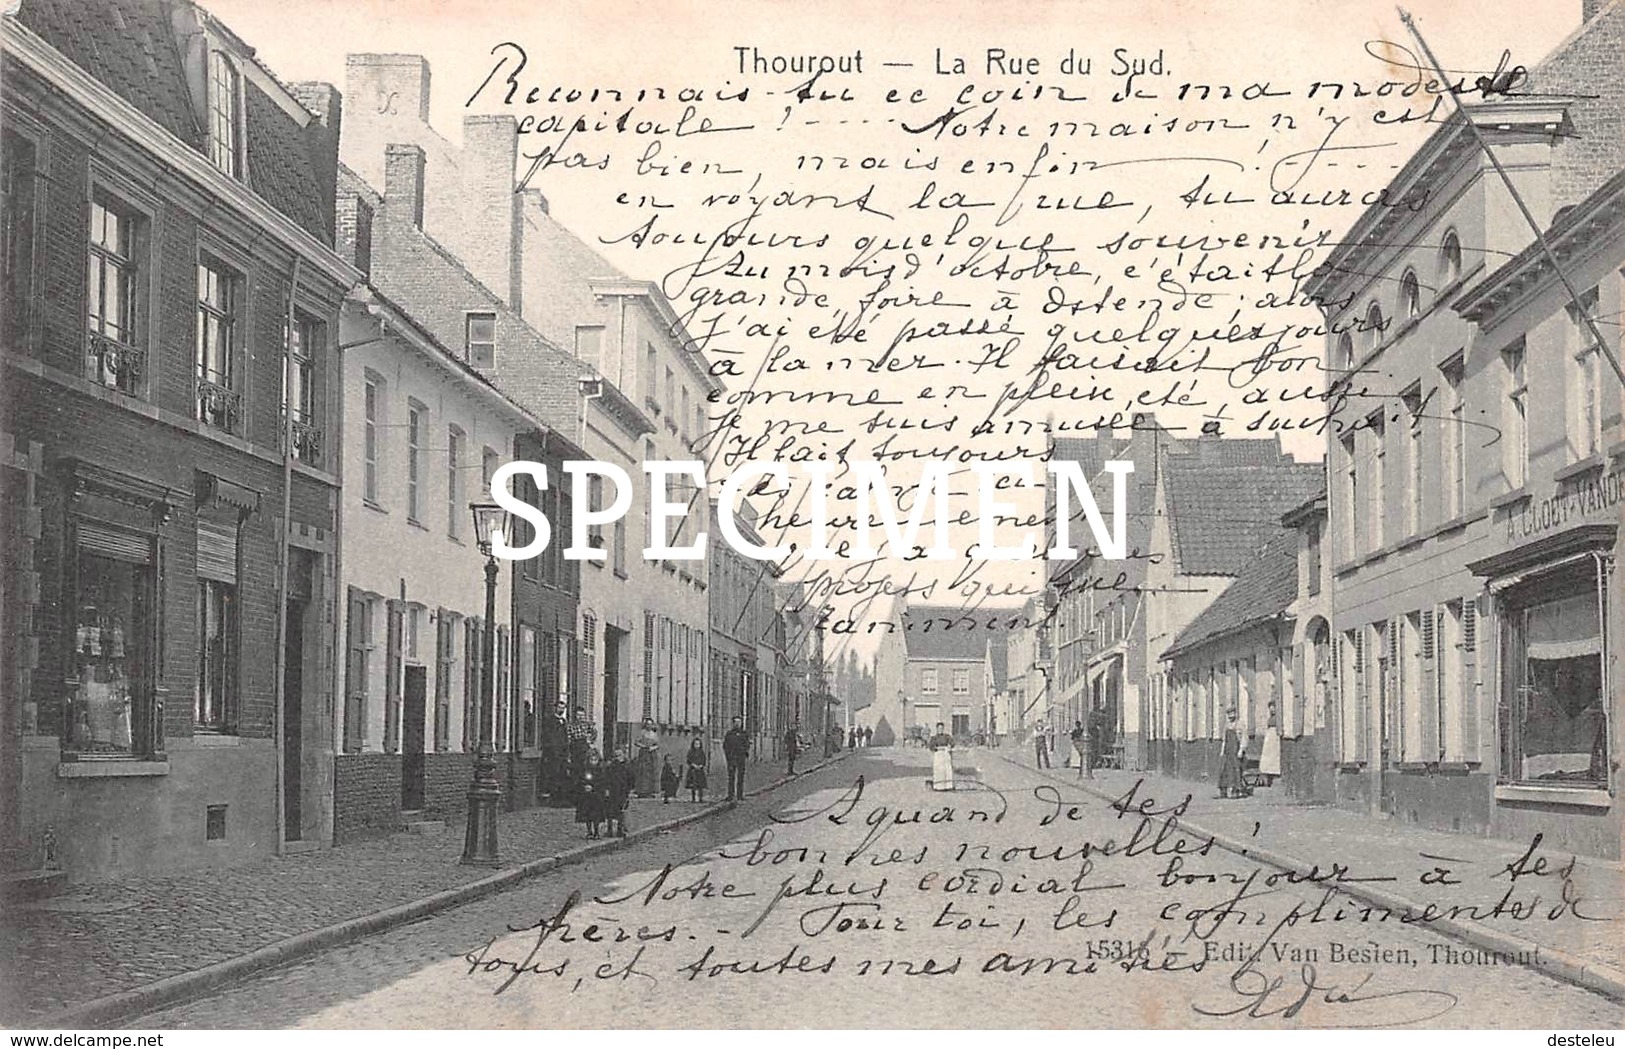 Thourout — La Rue du Sud.
Reconnais-tu ce coin de ma modeste
capitale ! ..... Notre maison n'y est
pas bien, mais enfin ! .....
en voyant la rue, tu auras
toujours quelque souvenir
Au mois d'octobre, c'était la
grande foire à Ostende, alors
J'ai été passé quelques jours
à la mer. Il faisait bon
comme en plein été, aussi
je me suis amusée à souhait
Il fait toujours
heureusement
il y a
projets qui que
A. CLOET-VANDE
SPECIMEN
A quand de tes
bonnes nouvelles !
Notre plus cordial bonjour à tes
frères. - Pour toi, les compliments de
tous, et toutes mes amitiés
15316 — Edit. Van Besien, Thourout.
delcampe.net
desteleu